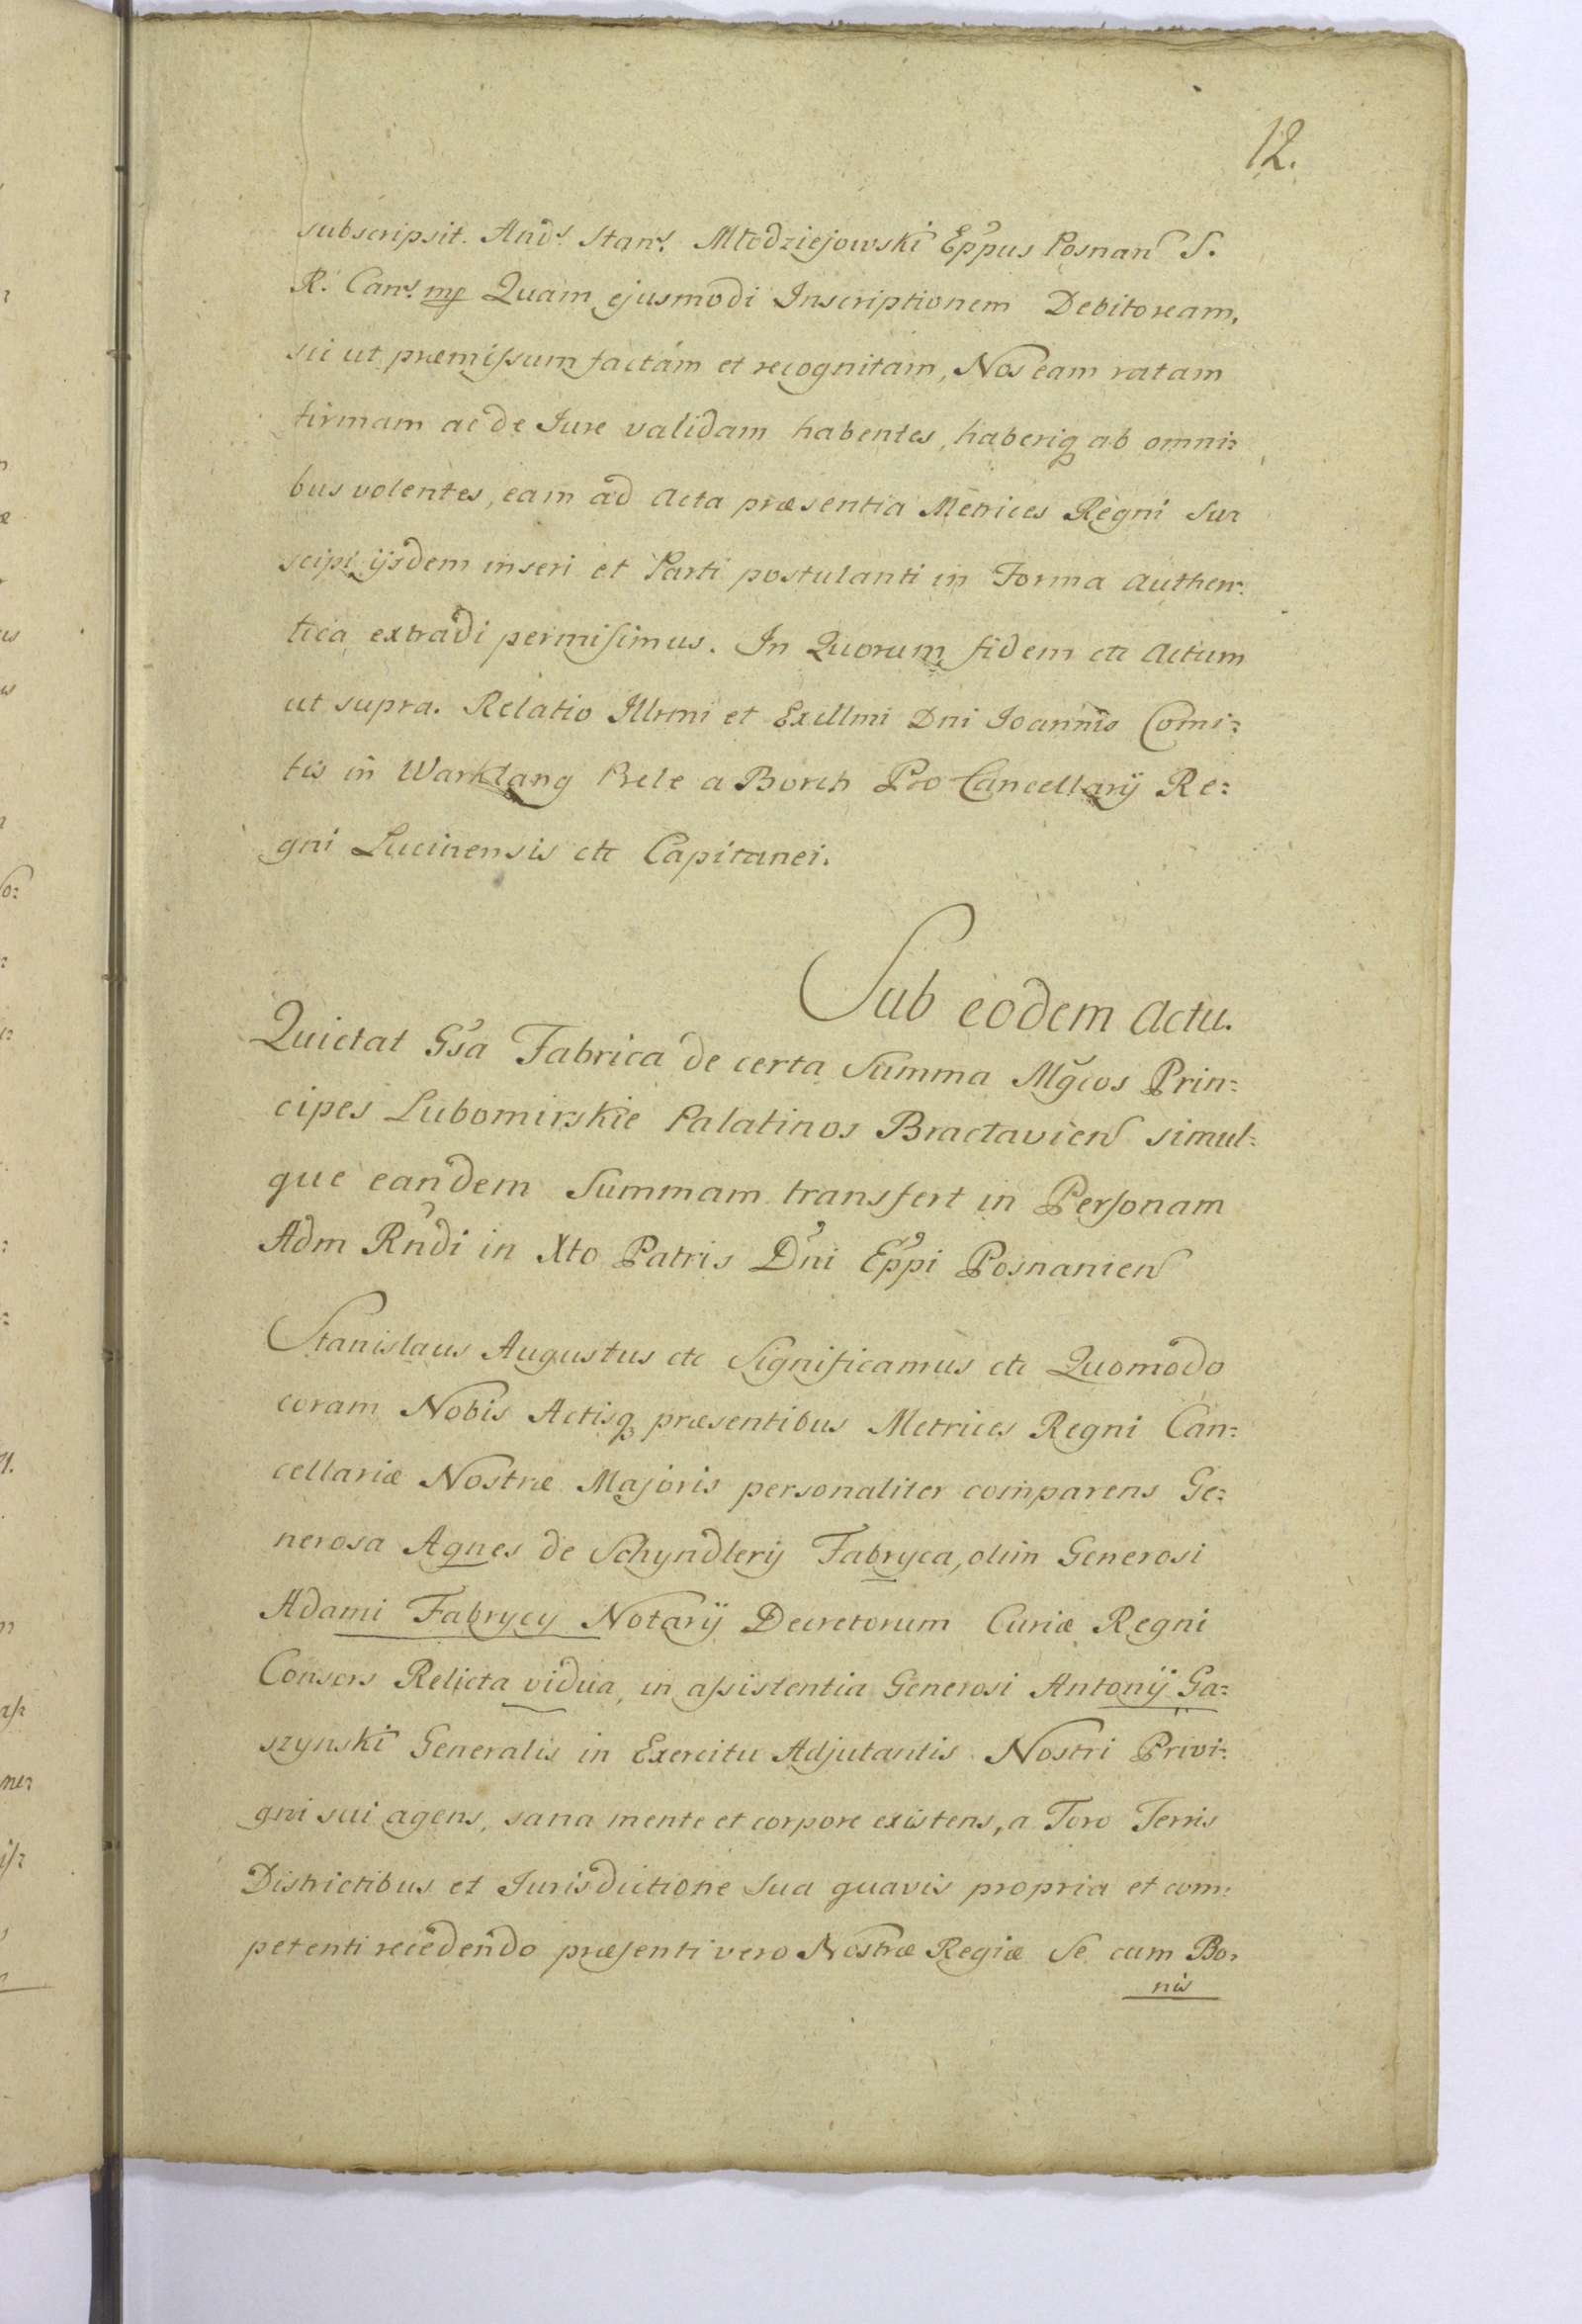 12.
subscripsit. Andˢ. Stanˢ. Młodziejowski Eppus Posnan S.
R. Canˢ. mp Quam ejusmodi Inscriptionem Debitoream,
sic ut præmissum factam et recognitam, Nos eam ratam
firmam ac de Iure validam habentes, haberiq ab omni=
bus volentes, eam ad Acta præsentia Metrices Regni Sus
scipi ijsdem inseri et Parti postulanti in Forma Authen=
tica extradi permisimus. In Quorum fidem etc Actum
ut supra. Relatio Illrmi et Excllmi Dni Ioannis Comi=
tis in Warkląng Prele a Borch Pro Cancellarij Re=
gni Lucinensis etc Capitanei.
Sub eodem Actu.
Quietat Gsa Fabrica de certa Summa Mgcos Prin=
cipes Lubomirskie Palatinos Bractavien simul=
que eandem Summam transfert in Personam
Adm Rndi in Xto Patris Dni Eppi Posnanien
Stanislaus Augustus etc Significamus etc Quomodo
coram Nobis Actisq præsentibus Metrices Regni Can=
cellariæ Nostræ Majoris personaliter comparens Ge=
nerosa Agnes de Schyndlery Fabryca, olim Generosi
Adami Fabrycy Notarij Decretorum Curiæ Regni
Consors Relicta vidua, in assistentia Generosi Antonij Ga=
szynski Generalis in Exercitu Adjutantis Nostri Privi=
gni sui agens, sana mente et corpore existens, a Foro Terris
Districtibus et Jurisdictione Sua quavis propria et com=
petenti recedendo præsenti vero Nostræ Regiæ Se cum Bo=
nis